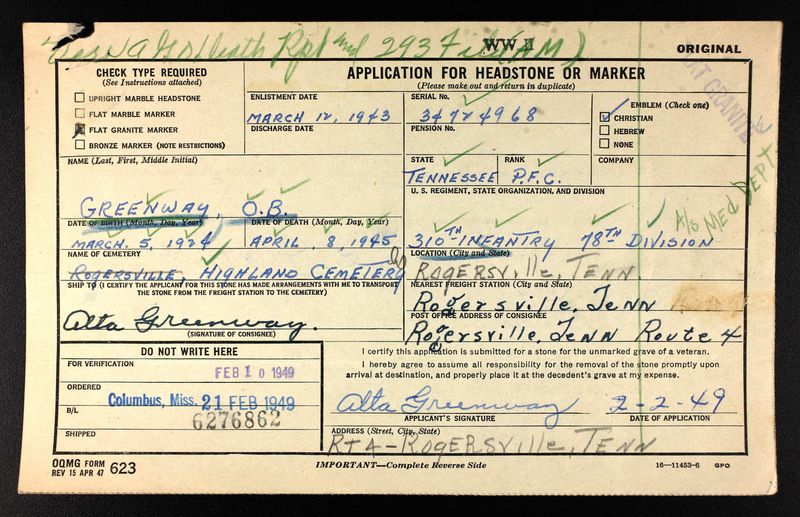 WW II
ORIGINAL
293 File (AM)
CHECK TYPE REQUIRED
(See Instructions attached)
UPRIGHT MARBLE HEADSTONE
FLAT MARBLE MARKER
FLAT GRANITE MARKER
BRONZE MARKER (NOTE RESTRICTIONS)
APPLICATION FOR HEADSTONE OR MARKER
(Please make out and return in duplicate)
ENLISTMENT DATE
MARCH 12, 1943
DISCHARGE DATE
SERIAL No.
34724968
PENSION No.
EMBLEM (Check one)
CHRISTIAN
HEBREW
NONE
FLAT GRANITE
NAME (Last, First, Middle Initial)
GREENWAY, O.B.
STATE
TENNESSEE
RANK
P.F.C.
COMPANY
A/S MED DEPT
U. S. REGIMENT, STATE ORGANIZATION, AND DIVISION
310TH INFANTRY 78TH DIVISION
DATE OF BIRTH (Month, Day, Year)
MARCH. 5, 1924
DATE OF DEATH (Month, Day, Year)
APRIL, 8, 1945
NAME OF CEMETERY
ROGERSVILLE, HIGHLAND CEMETERY
LOCATION (City and State)
ROGERSVIlle, TENN
SHIP TO (I CERTIFY THE APPLICANT FOR THIS STONE HAS MADE ARRANGEMENTS WITH ME TO TRANSPORT
THE STONE FROM THE FREIGHT STATION TO THE CEMETERY)
Alta Greenway.
(SIGNATURE OF CONSIGNEE)
NEAREST FREIGHT STATION (City and State)
Rogersville, Tenn
POST OFFICE ADDRESS OF CONSIGNEE
Rogersville, Tenn Route 4
DO NOT WRITE HERE
FOR VERIFICATION
FEB 10 1949
ORDERED
Columbus, Miss. 21 FEB 1949
B/L
6276862
SHIPPED
I certify this application is submitted for a stone for the unmarked grave of a veteran.
I hereby agree to assume all responsibility for the removal of the stone promptly upon
arrival at destination, and properly place it at the decedent's grave at my expense.
Alta Greenway 2-2-49
APPLICANT'S SIGNATURE
DATE OF APPLICATION
ADDRESS (Street, City, State)
RT 4-ROGERSVIlle, TENN
OQMG FORM
REV 15 APR 47
623
IMPORTANT—Complete Reverse Side
16—11453-6 GPO